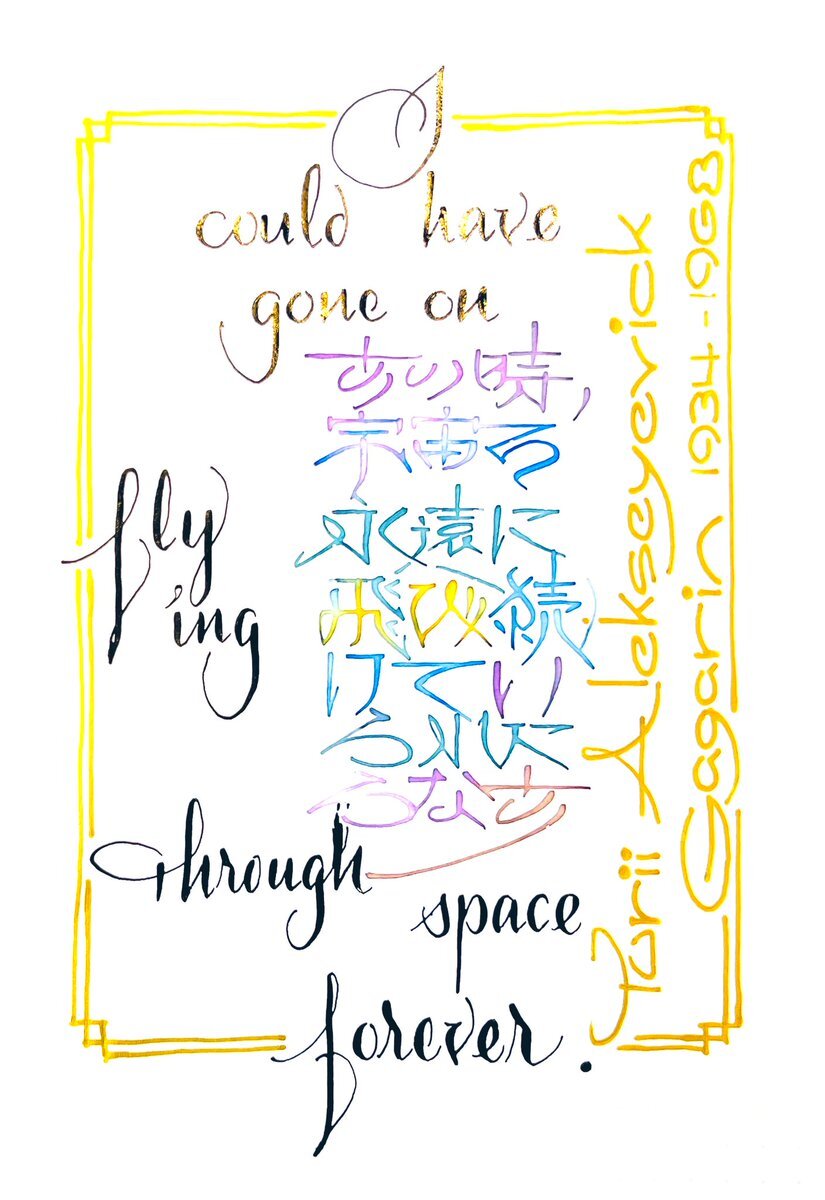 I
could have
gone on
あの時,
宇宙を
永遠に
飛び続
けてい
られた
らなあ
fly
ing
through
space
forever.
Yurii Alekseyevick
Gagarin 1934-1968